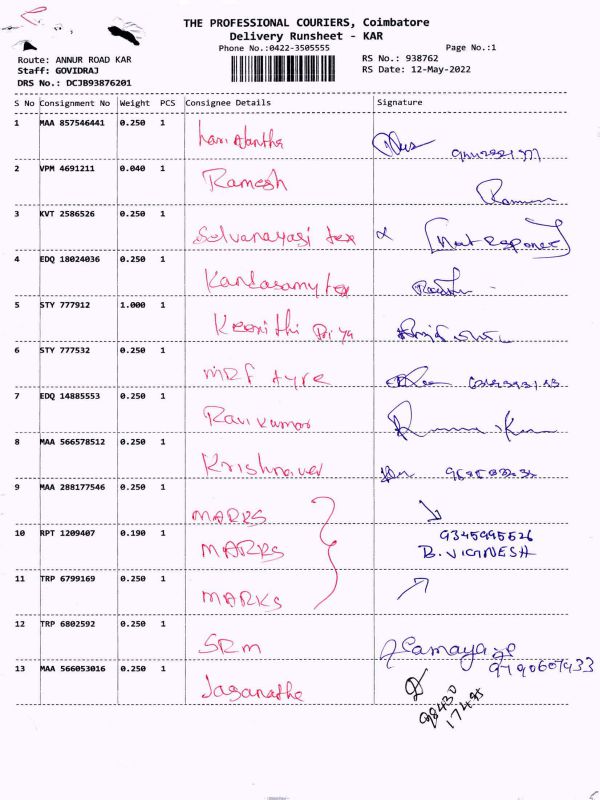 THE PROFESSIONAL COURIERS, Coimbatore
Delivery Runsheet - KAR
Phone No.:0422-3505555
Page No.:1
Route: ANNUR ROAD KAR
RS No.: 938762
Staff: GOVIDRAJ
RS Date: 12-May-2022
DRS No.: DCJB93876201
S No Consignment No Weight PCS Consignee Details Signature
1 MAA 857546441 0.250 1
2 VPM 4691211 0.040 1 Ramesh
3 KVT 2586526 0.250 1 Selvanayagi tex
4 EDQ 18024036 0.250 1 Kandasamy tex
5 STY 777912 1.000 1 Keerithi Priya
6 STY 777532 0.250 1 MRF tyre
7 EDQ 14885553 0.250 1 Ravikumar
8 MAA 566578512 0.250 1 Krishnaver
9 MAA 288177546 0.250 1 MARKS
10 RPT 1209407 0.190 1 MARKS 9345995526
B. VIGNESH
11 TRP 6799169 0.250 1 MARKS
12 TRP 6802592 0.250 1 SRM
9790607433
13 MAA 566053016 0.250 1 Jaganatha
98430
17495